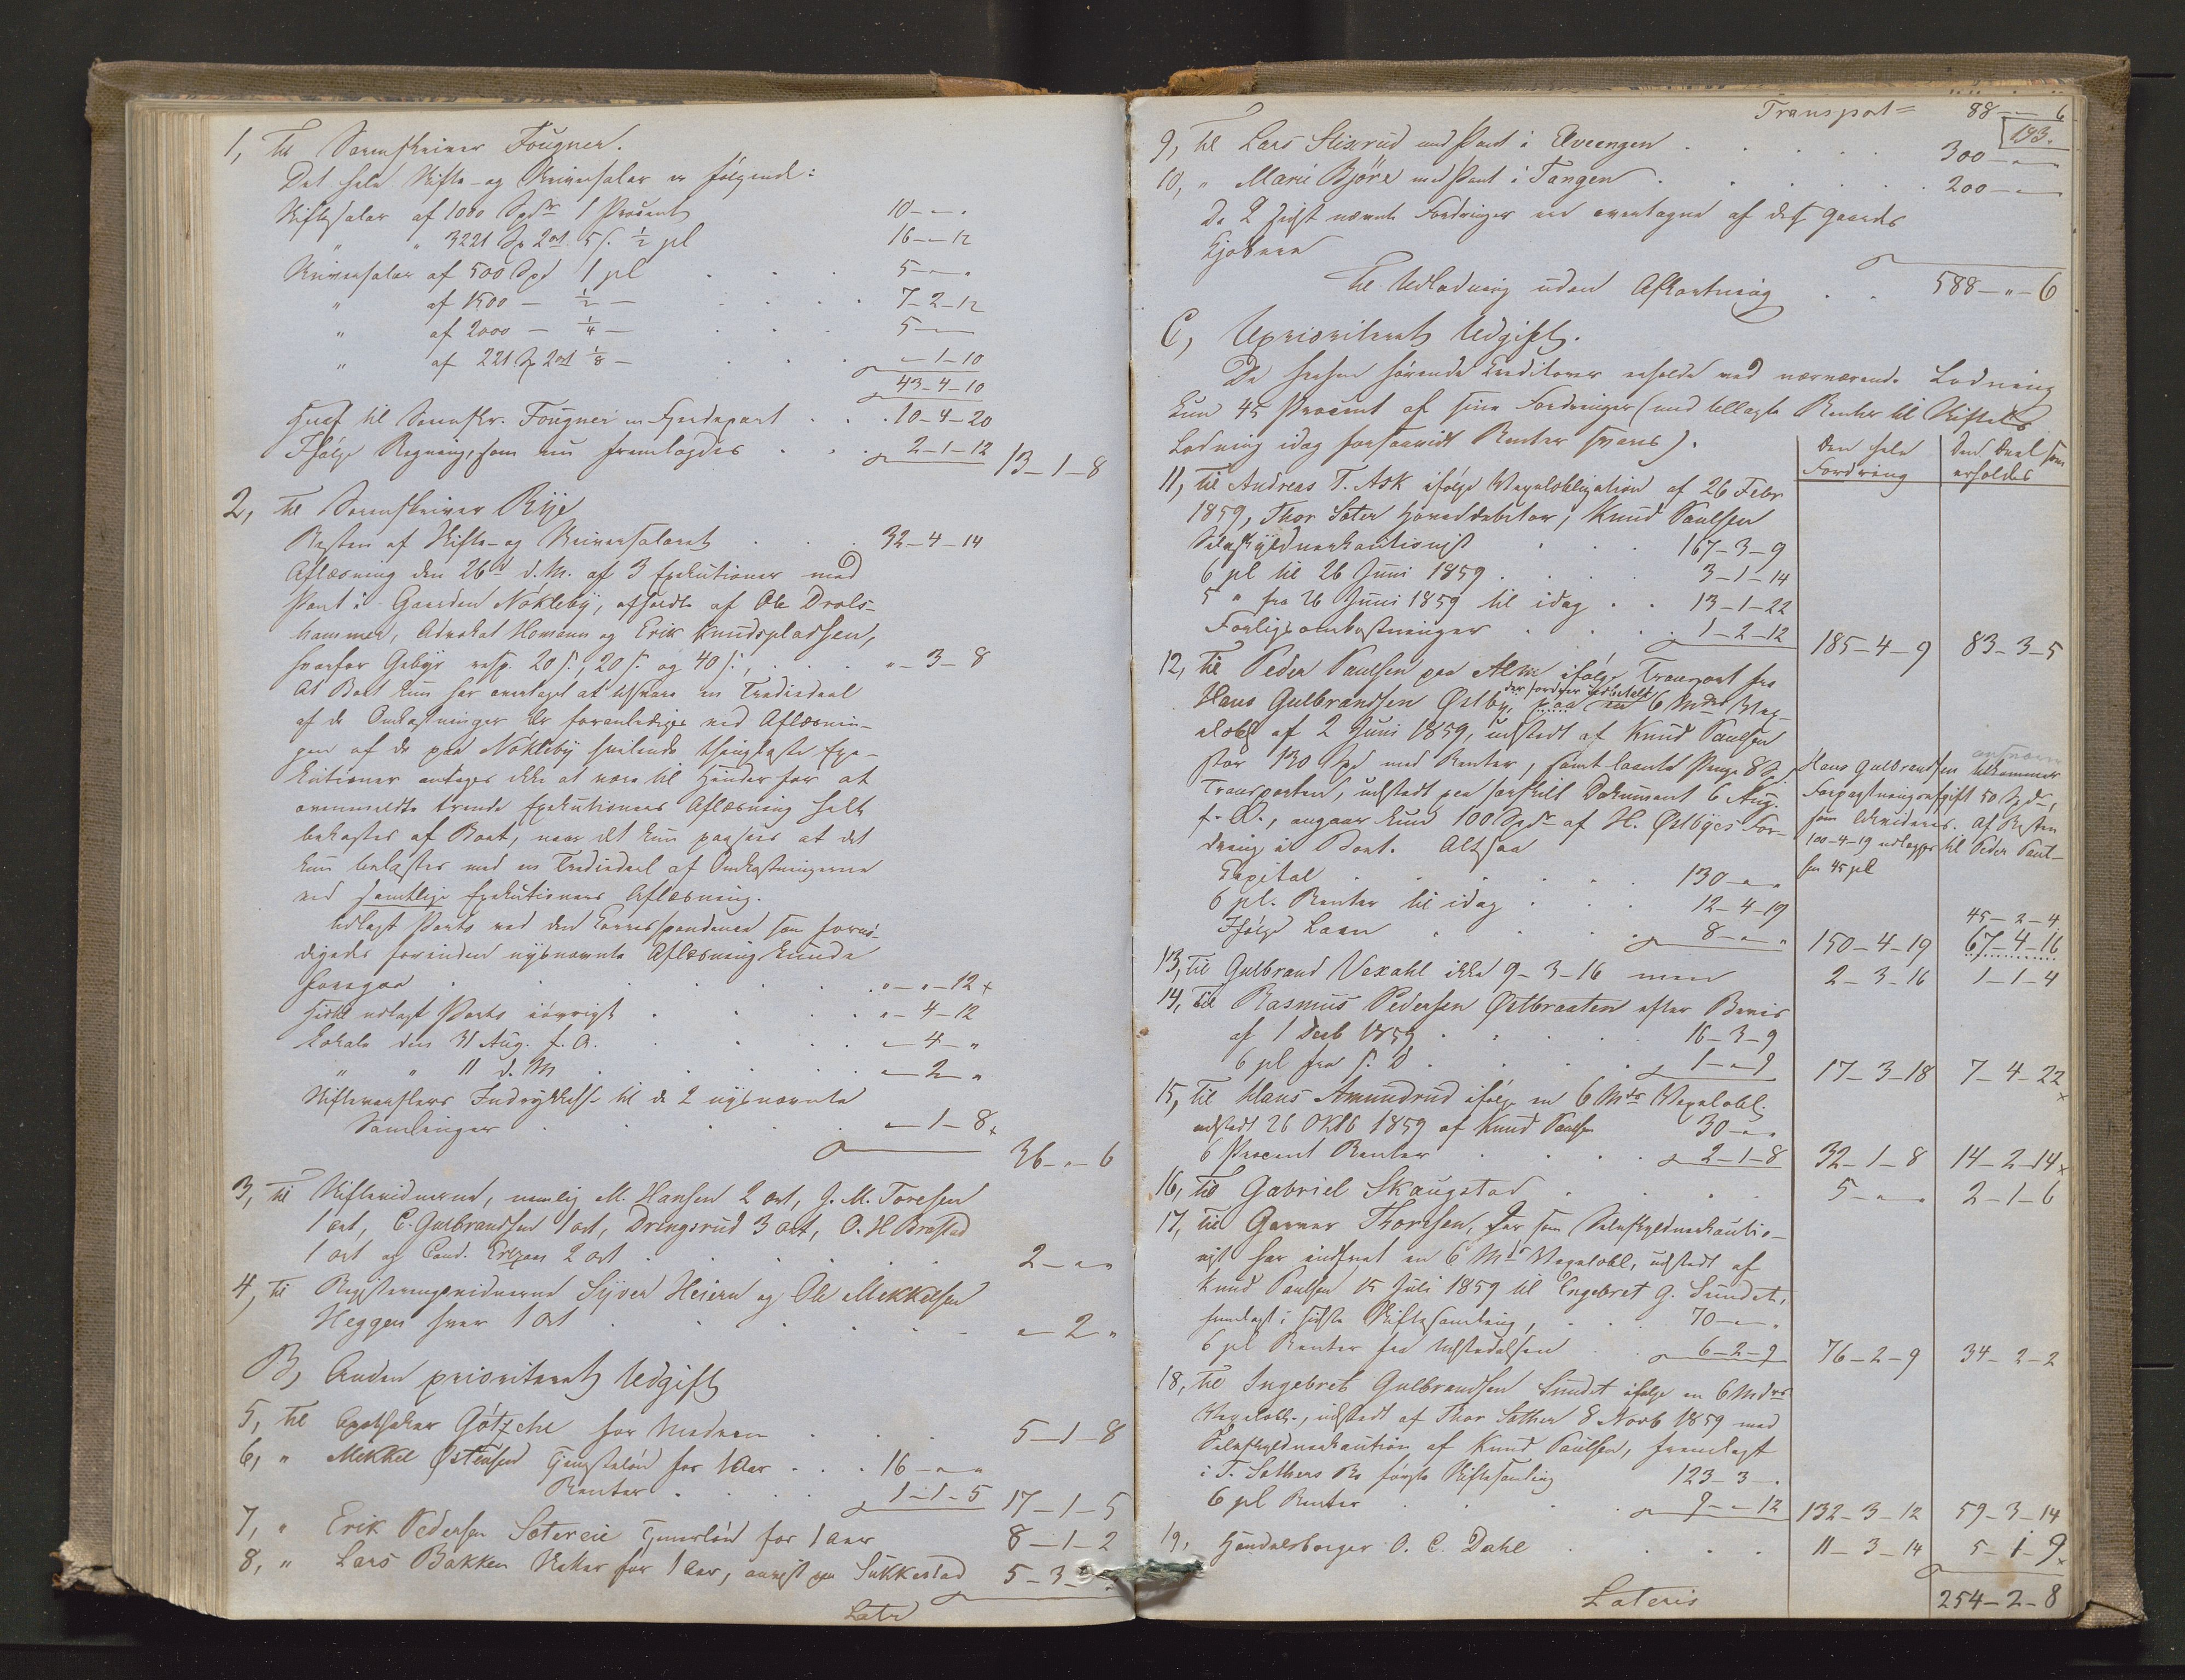 1, Til Sorenskriver Fougner.
Det hele Skifte- og Skriversalær er følgende:
Skiftesalær af 1000 Spdr 1 Procent 10 - " - "
" " 3221 Sp 2 ort 5 s. ½ pCt 16 - " - 12
Skriversalær af 500 Spd 1 pCt . . . 5 - " - "
" af 1500 — ½ — . . . 7 - 2 - 12
" af 2000 — ¼ — . . . 5 - " -
" af 221 Sp 2 ort ⅛ — . . . " - 1 - 10
43 - 4 - 10
heraf til Sorenskr. Fougner en Fjerdepart . . . 10 - 4 - 20
Ifølge Regning, som nu fremlagdes . . . 2 - 1 - 12 13 - 1 - 8
2, Til Sorenskriver Rije
Resten af Skifte- og Skriversalæret . . . 32 - 4 - 14
Aflæsning den 26de d. M. af 3 Exekutioner med
Pant i Gaarden Nökleby, afholdte af Ole Drols-
hammer, Advokat Homann og Erik Knudsplassen,
hvorfor Gebyr resp. 20 s., 20 s. og 40 s., . . . " - 3 - 8
At Boet kun har overtaget at udrede en Trediedeel
af de Omkostninger der foranlediges ved Aflæsnin-
gen af de paa Nökleby hvilende thinglæste Exe-
kutioner antages ikke at være til Hinder for at
ovenmeldte trende Exekutioners Aflæsning helt
bekostes af Boet, naar det kun paasees at det
kun belastes med en Trediedeel af Omkostningerne
ved samtlige Exekutioners Aflæsning.
Udlagt Porto ved den Correspondence som fornö-
digedes forinden nysnævnte Aflæsning kunde
foregaa . . . " - " - 12 +
Hidtil udlagt Porto iøvrigt . . . " - 4 - 12
Lokale den 31 Aug. f. A. . . . " - 4 - "
" " 11 d. M. . . . " - 2 - "
Indrykkelse til de 2 nysnævnte
Samlinger . . . " - 1 - 8 +
36 - " - 6
3, Til Skiftevidnerne, nemlig M. Hansen 2 ort, J. M. Toresen
1 ort, C. Gulbrandsen 1 ort, Drengsrud 3 ort, O. H. Brastad
1 ort og Cand. 2 ort . . . 2 - " - "
4, Til Registeringsvidnerne Syver Heiern og Ole Mikkelsen
Heggen hver 1 ort . . . " - 2 - "
B, Anden prioriteret Udgift
5, Til Apotheker Götzche for Medicin . . . 5 - 1 - 8
6, " Mikkel Østensen Tjenesteløn for 1 Aar . . . 16 - " - "
Renter . . . 1 - 1 - 5 17 - 1 - 5
7, " Erik Pedersen Sætereie Tjenerløn for 1 Aar 8 - 1 - 2
8, " Lars Bakken Skatter for 1 Aar, paa Sukkestad 5 - 3 -
Latr
Transport = 88 - " - 6
193.
9, Til Lars Slisrud med Pant i Elveengen . . . 300 - " -
10, " Marie Björe med Pant i Tangen . . . 200 - " -
De 2 sidst nævnte Fordringer ere overtagne af dets Gaards
Kjøbere
Til Udlodning uden Afkortning . . 588 - " - 6
C, Uprioriteret Udgift.
De herhen hørende Creditorer erholde ved nærværende Lodning
kun 45 Procent af sine Fordringer (med tillagte Renter til Skiftets
Lodning idag forsaavidt Renter svares).
Den hele Fordring
Den Deel som erholdes
11, Til Andreas T. Ask ifølge Vexelobligation af 26 Febr
1859, Thor Sæter Hoveddebitor, Knud Paulsen
Selvskyldnerkautionist . . . 167 - 3 - 9
6 pCt til 26 Juni 1859 . . . 3 - 1 - 14
5 " fra 26 Juni 1859 til idag . . 13 - 1 - 22
Forligsomkostninger . . . 1 - 2 - 12 185 - 4 - 9 83 - 3 - 5
12, Til Peder Paulsen paa Alm ifølge Transport fra
Hans Gulbrandsen Østby, der fordrer udbetalt paa en 6 Mdrs Vex-
elobl af 2 Juni 1859, udstedt af Knud Paulsen
stor 130 Spd med Renter, samt laante Penge 8 Sp.
Transporten, udstedt paa særskilt Dokument 6 Aug.
f. A., angaar kun 100 Spdr af H. Østbyes For-
dring i Boet. Altsaa
Hans Gulbrandsen tilkommer
Forpagtningsafgift 50 Spdr,
som likvideres. Af Resten
100-4-19 udlægges til Peder Paul-
sen 45 pCt
Capital . . . 130 - " - "
6 pCt. Renter til idag . . . 12 - 4 - 19
45 - 2 - 4
Ifølge Laan . . . 8 - " - " 150 - 4 - 19 67 - 4 - 16
13, Til Gulbrand Vexahl ikke 9 - 3 - 16 men 2 - 3 - 16 1 - 1 - 4
14, Til Rasmus Pedersen Østbraaten efter Beviis
af 1 Decb 1859 . . . 16 - 3 - 9
6 pCt fra s. D . . . 1 - " - 9 17 - 3 - 18 7 - 4 - 22 +
15, Til Hans Amundrud ifølge en 6 Mdrs Vexelobl.
udstedt 26 Oktb 1859 af Knud Paulsen 30 - " - "
6 Procent Renter . . . 2 - 1 - 8 32 - 1 - 8 14 - 2 - 14 +
16, Til Gabriel Skaugstad . . . 5 - " - " 2 - 1 - 6
17, Til Gunner Thoresen, der som Selvskyldnerkautio-
nist har indfriet en 6 Mdrs Vexelobl, udstedt af
Knud Paulsen 15 Juli 1859 til Engebret G. Sundet,
fremlagt i sidste Skiftesamling, . . . 70 - " - "
6 pCt Renter fra Udstedelsen . 6 - 2 - 9 76 - 2 - 9 34 - 2 - 2
18, Til Ingebret Gulbrandsen Sundet ifølge en 6 Mdrs
Vexelobl., udstedt af Thor Sæther 8 Novb 1859 med
Selvskyldnerkaution af Knud Paulsen, fremlagt
i T. Sæthers Bo første Skiftesamling 123 - 3 - "
6 pCt Renter . . . 9 - " - 12 132 - 3 - 12 59 - 3 - 14
19, Handelsborger O. C. Dahl . . . 11 - 3 - 14 5 - 1 - 9 +
Lateris 254 - 2 - 8